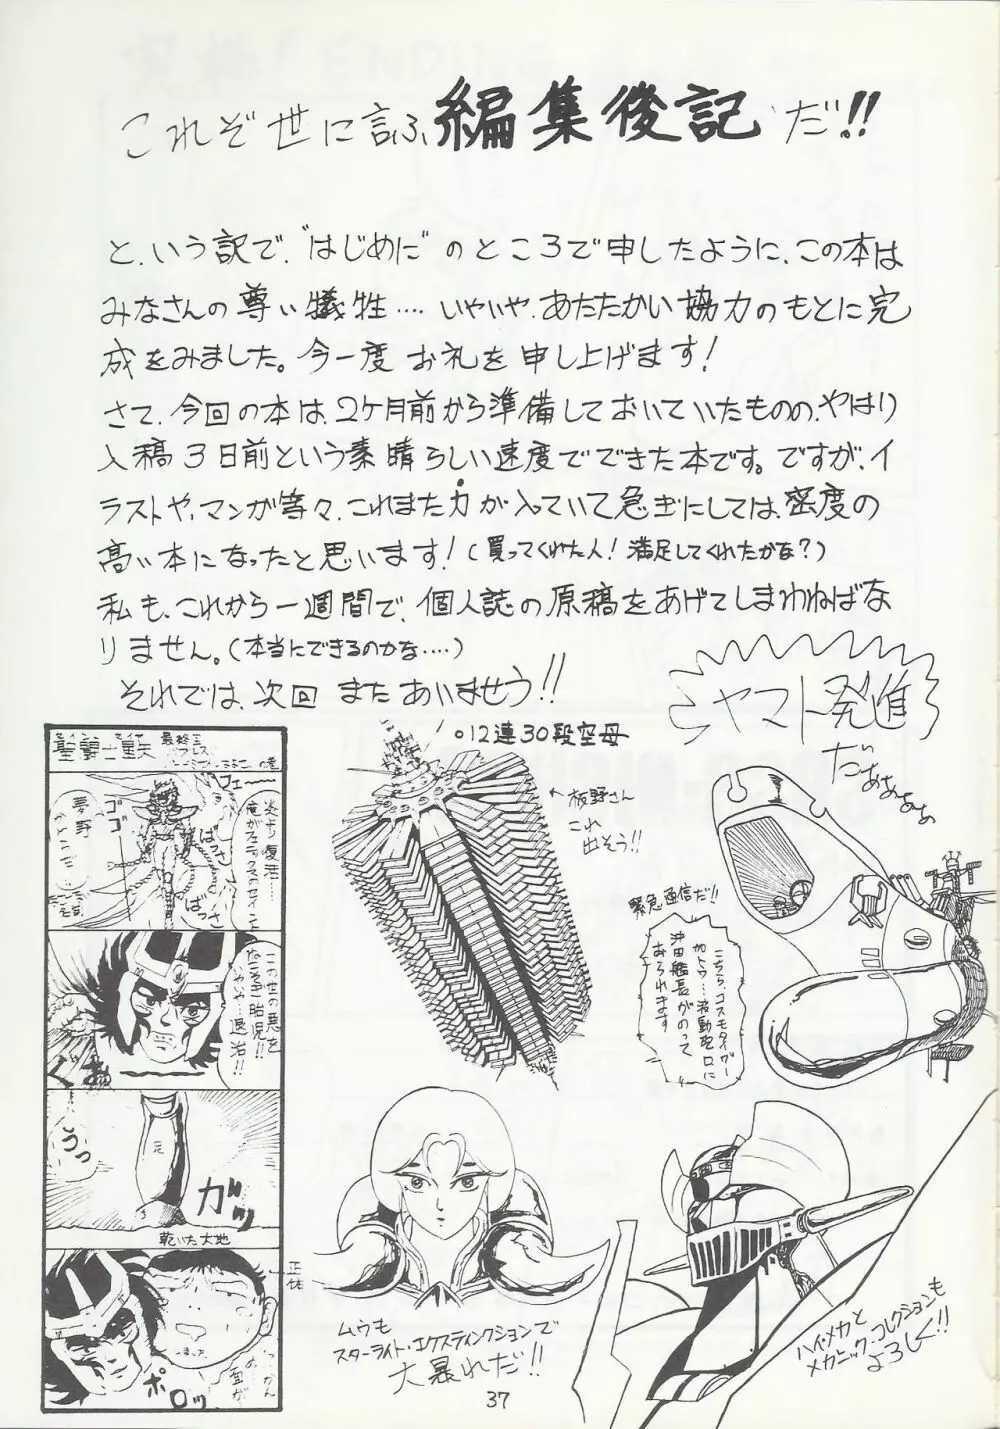 これぞ世に言ふ編集後記だ!!
と、いう訳で、"はじめに"のところで申したように、この本は
みなさんの尊い犠牲‥‥いやいや、あたたかい協力のもとに完
成をみました。今一度お礼を申し上げます!
さて、今回の本は、2ヶ月前から準備しておいていたものの、やはり
入稿3日前という素晴らしい速度でできた本です。ですが、イ
ラストや、マンガ等々、これまた力が入っていて急ぎにしては、密度の
高い本になったと思います!(買ってくれた人!満足してくれたかな?)
私も、これから一週間で、個人誌の原稿をあげてしまわねばな
りません。(本当にできるのかな‥‥)
それでは、次回またあいませう!!
ヤマト発進
だぁぁぁぁ
。12連30段空母
←板野さん
これ
出そう!!
緊急通信だ!!
こちら、コスモタイガー
カトウ…波動砲口に
沖田艦長がのって
おられます
聖闘士重矢
最終王
フェ〜
炎より復活…
俺がフェニックスのセイントよ
ゴゴゴ
ばっさ
ばっさ
この世の悪を
胎児!!
退治!!
うっ
ガッ
乾いた大地
正体
ポロッ
ムウも
スターライト・エクスティンクションで
大暴れだ!!
ハイ・メカと
メカニック・コレクションも
よろしく!!
37